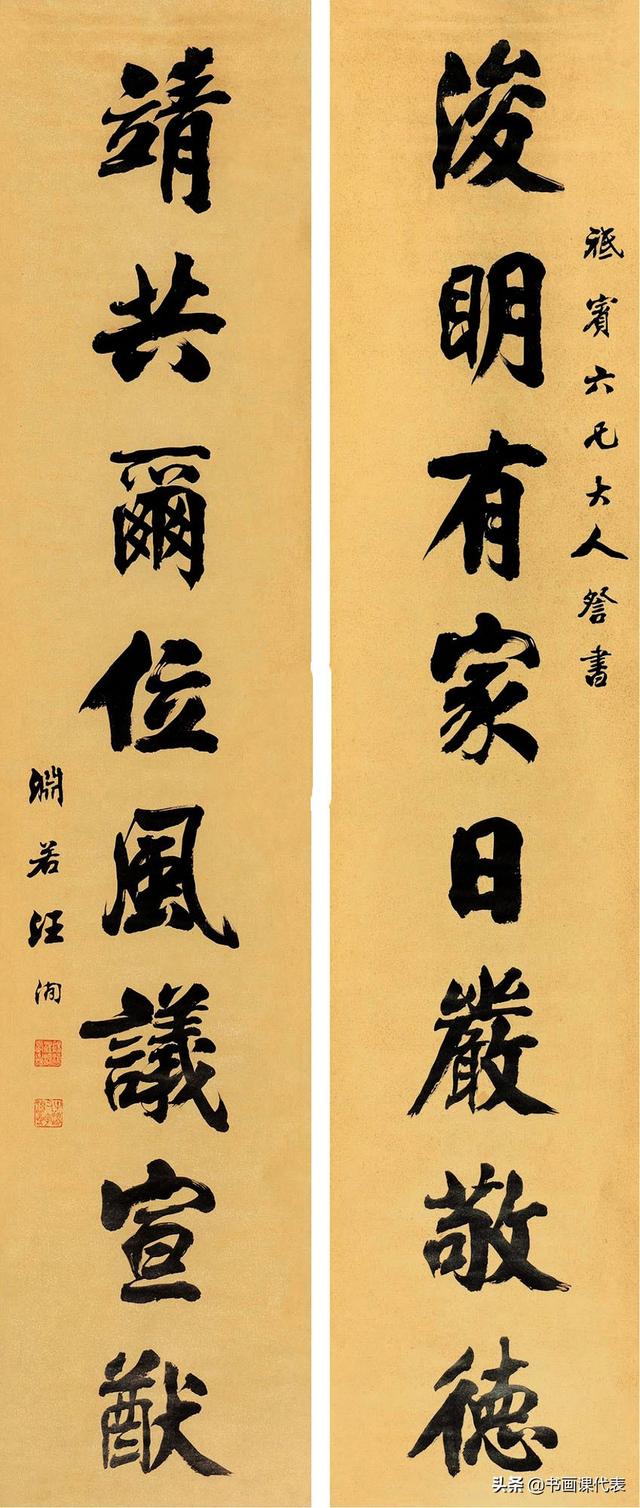 祗賓六兄大人詧書
浚明有家日嚴敬德
靖共爾位風議宣猷
淵若汪洵
头条 @书画课代表